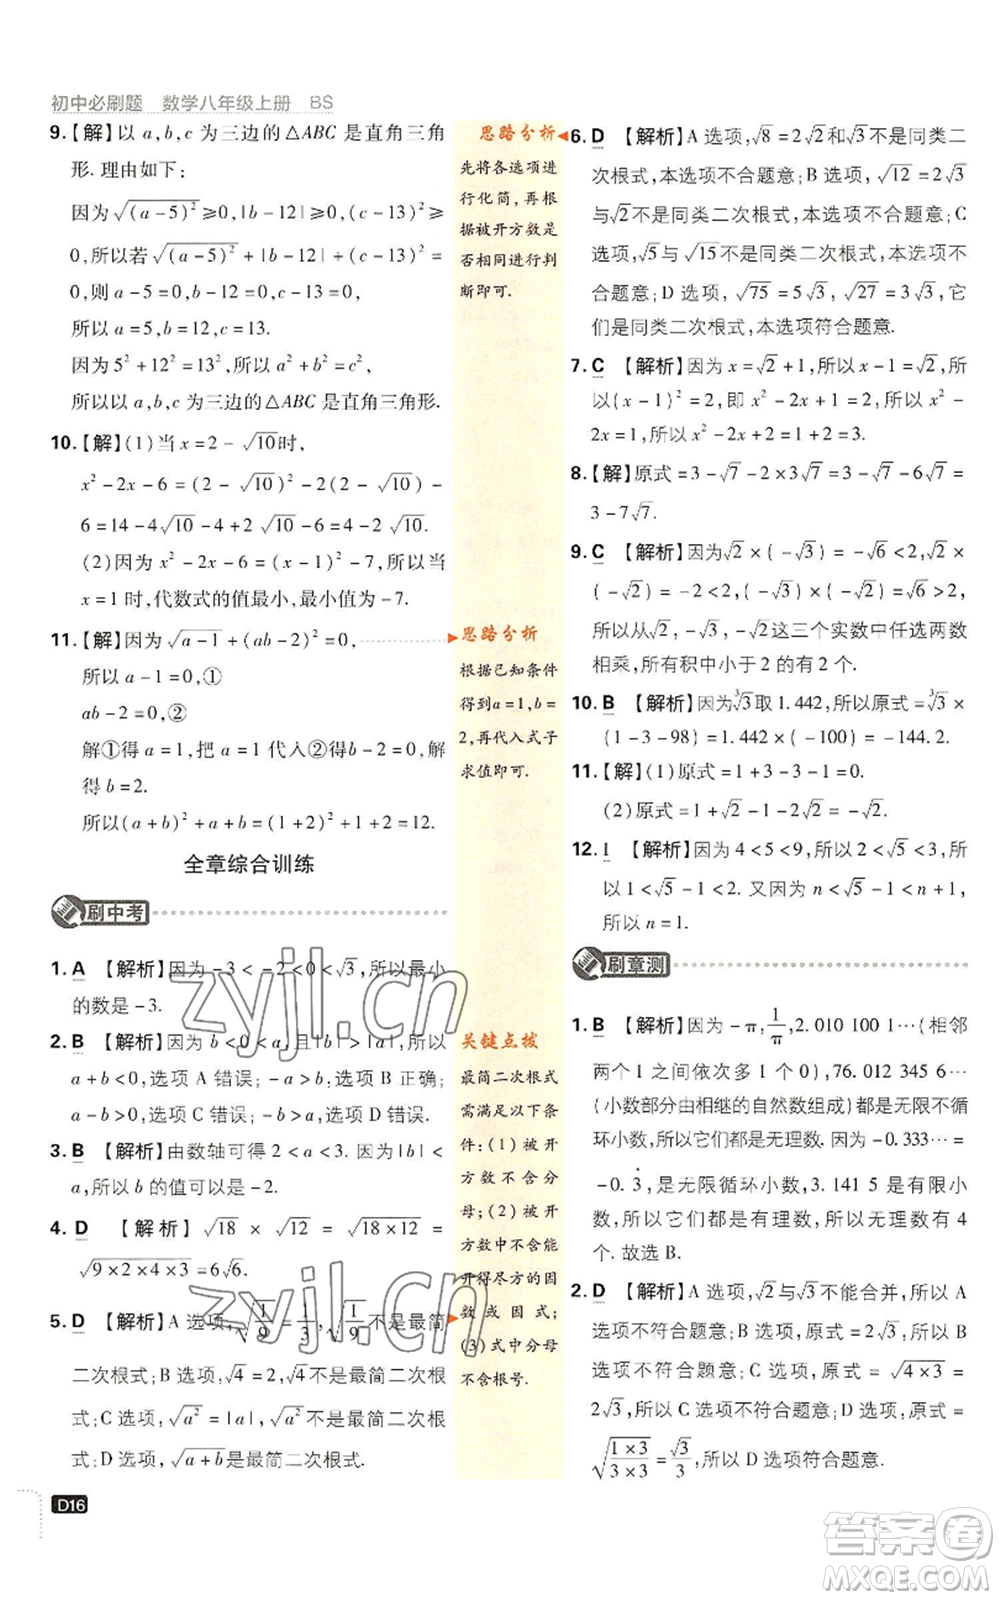 初中必刷题 数学八年级上册 BS
9.【解】以 a,b,c 为三边的△ABC 是直角三角
形. 理由如下:
因为√(a-5)²≥0,|b-12|≥0,(c-13)²≥
0,所以若√(a-5)²+|b-12|+(c-13)²=
0,则 a-5=0,b-12=0,c-13=0,
所以 a=5,b=12,c=13.
因为 5²+12²=13²,所以 a²+b²=c²,
所以以 a,b,c 为三边的△ABC 是直角三角形.
10.【解】(1)当 x=2-√10时,
x²-2x-6=(2-√10)²-2(2-√10)-
6=14-4√10-4+2√10-6=4-2√10.
(2)因为 x²-2x-6=(x-1)²-7,所以当
x=1 时,代数式的值最小,最小值为-7.
11.【解】因为√a-1+(ab-2)²=0,
所以 a-1=0,①
ab-2=0,②
解①得 a=1,把 a=1 代入②得 b-2=0,解
得 b=2.
所以(a+b)²+a+b=(1+2)²+1+2=12.
全章综合训练
刷中考
1. A 【解析】因为-3<-2<0<√3,所以最小
的数是-3.
2. B 【解析】因为 b<0<a,且|b|>|a|,所以
a+b<0,选项 A 错误;b-a<0,选项 B 正确;
a-b>0,选项 C 错误;-a>b,选项 D 错误.
3. B 【解析】由数轴可得 2<a<3. 因为|b|<
a,所以 b 的值可以是-2.
4. D 【解析】√18×√12=√18×12=
√9×2×4×3=6√6.
5. D 【解析】A 选项,√(1/9)=1/3,√(1/9)不是最简
二次根式;B 选项,√4=2,√4不是最简二次根
式;C 选项,√a²=|a|,√a²不是最简二次根
式;D 选项,√a+b是最简二次根式.
D16
思路分析
先将各选项进
行化简,再根
据被开方数是
否相同进行判
断即可.
思路分析
根据已知条件
得到a=1,b=
2,再代入式子
求值即可.
关键点拨
最简二次根式
需满足以下条
件:(1)被开
方数不含分
母;(2)被开
方数中不含能
开得尽方的因
数或因式;
(3)式中分母
不含根号.
6. D 【解析】A 选项,√8=2√2和√3不是同类二
次根式,本选项不合题意;B 选项,√12=2√3
与√2不是同类二次根式,本选项不合题意;C
选项,√5与√15不是同类二次根式,本选项不
合题意;D 选项,√75=5√3,√27=3√3,它
们是同类二次根式,本选项符合题意.
7. C 【解析】因为 x=√2+1,所以 x-1=√2,所
以(x-1)²=2,即 x²-2x+1=2,所以 x²-
2x=1,所以 x²-2x+2=1+2=3.
8.【解】原式=3-√7-2×3√7=3-√7-6√7=
3-7√7.
9. C 【解析】因为√2×(-√3)=-√6<2,√2×
(-√2)=-2<2,(-√3)×(-√2)=√6>2,
所以从√2,-√3,-√2这三个实数中任选两数
相乘,所有积中小于 2 的有 2 个.
10. B 【解析】因为∛3取 1.442,所以原式=∛3×
(1-3-98)=1.442×(-100)=-144.2.
11.【解】(1)原式=1+3-3-1=0.
(2)原式=1+√2-1-2√2=-√2.
12. 1 【解析】因为 4<5<9,所以 2<√5<3,所
以 1<√5-1<2. 又因为 n<√5-1<n+1,
所以 n=1.
刷章测
1. B 【解析】因为-π,1/π,2.010 100 1…(相邻
两个 1 之间依次多一个 0),76.012 345 6…
(小数部分由相继的自然数组成)都是无限不循
环小数,所以它们都是无理数. 因为-0.333…=
-0.3̇,是无限循环小数,3.141 5 是有限小
数,所以它们都是有理数,所以无理数有 4
个. 故选 B.
2. D 【解析】A 选项,√2与√3不能合并,所以 A
选项不符合题意;B 选项,原式=2√3,所以 B
选项不符合题意;C 选项,原式=√4×3=
2√3,所以 C 选项不符合题意;D 选项,原式=
√(1×3/3×3)=√3/3,所以 D 选项符合题意.
zyjl.cn
zyjl.cn
答案圈
MXQE.COM